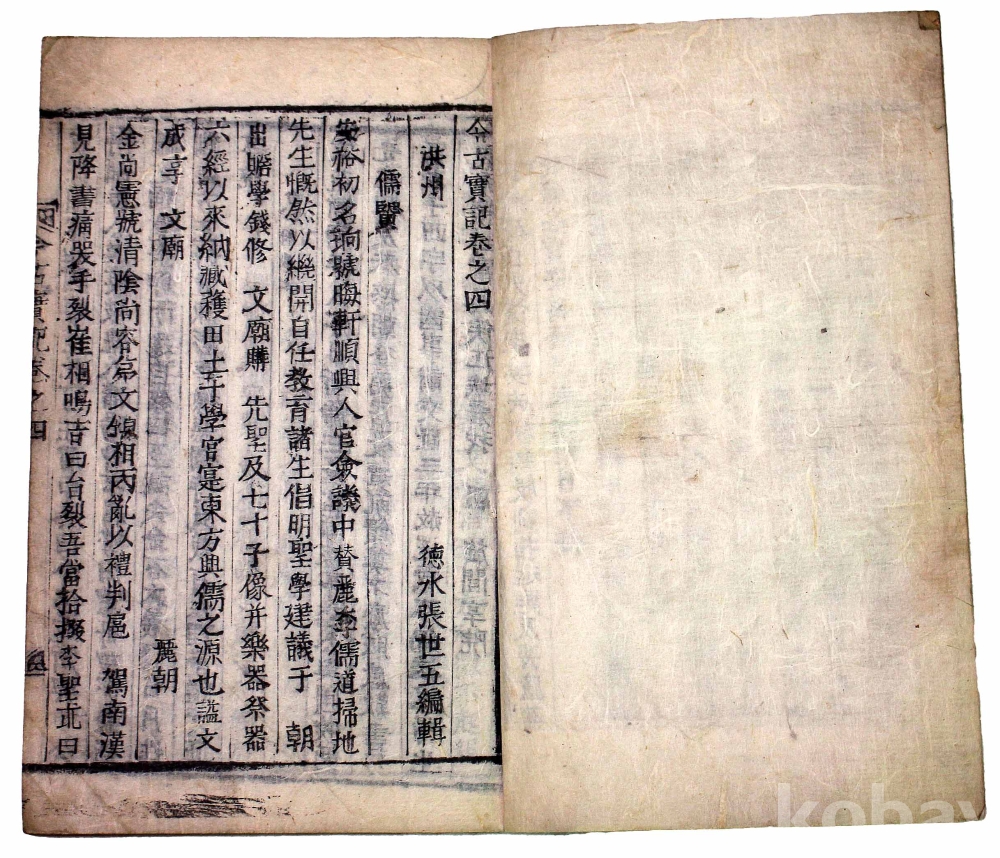 今古寶記卷之四
洪州 德水張世五編輯
儒賢
安裕初名珦號晦軒順興人官僉議中贊麗季儒道掃地
先生慨然以繼開自任敎育諸生倡明聖學建議于 朝
出贍學錢修 文廟購 先聖及七十子像并樂器祭器
六經以來納臧穫田土于學官寔東方興儒之源也謚文
成享 文廟 麗朝
金尙憲號淸陰尙容弟文 相丙亂以禮判扈 駕南漢
見降書痛哭手裂崔相鳴吉曰台裂吾當拾掇李聖 曰
今古寶記卷之四
kobay